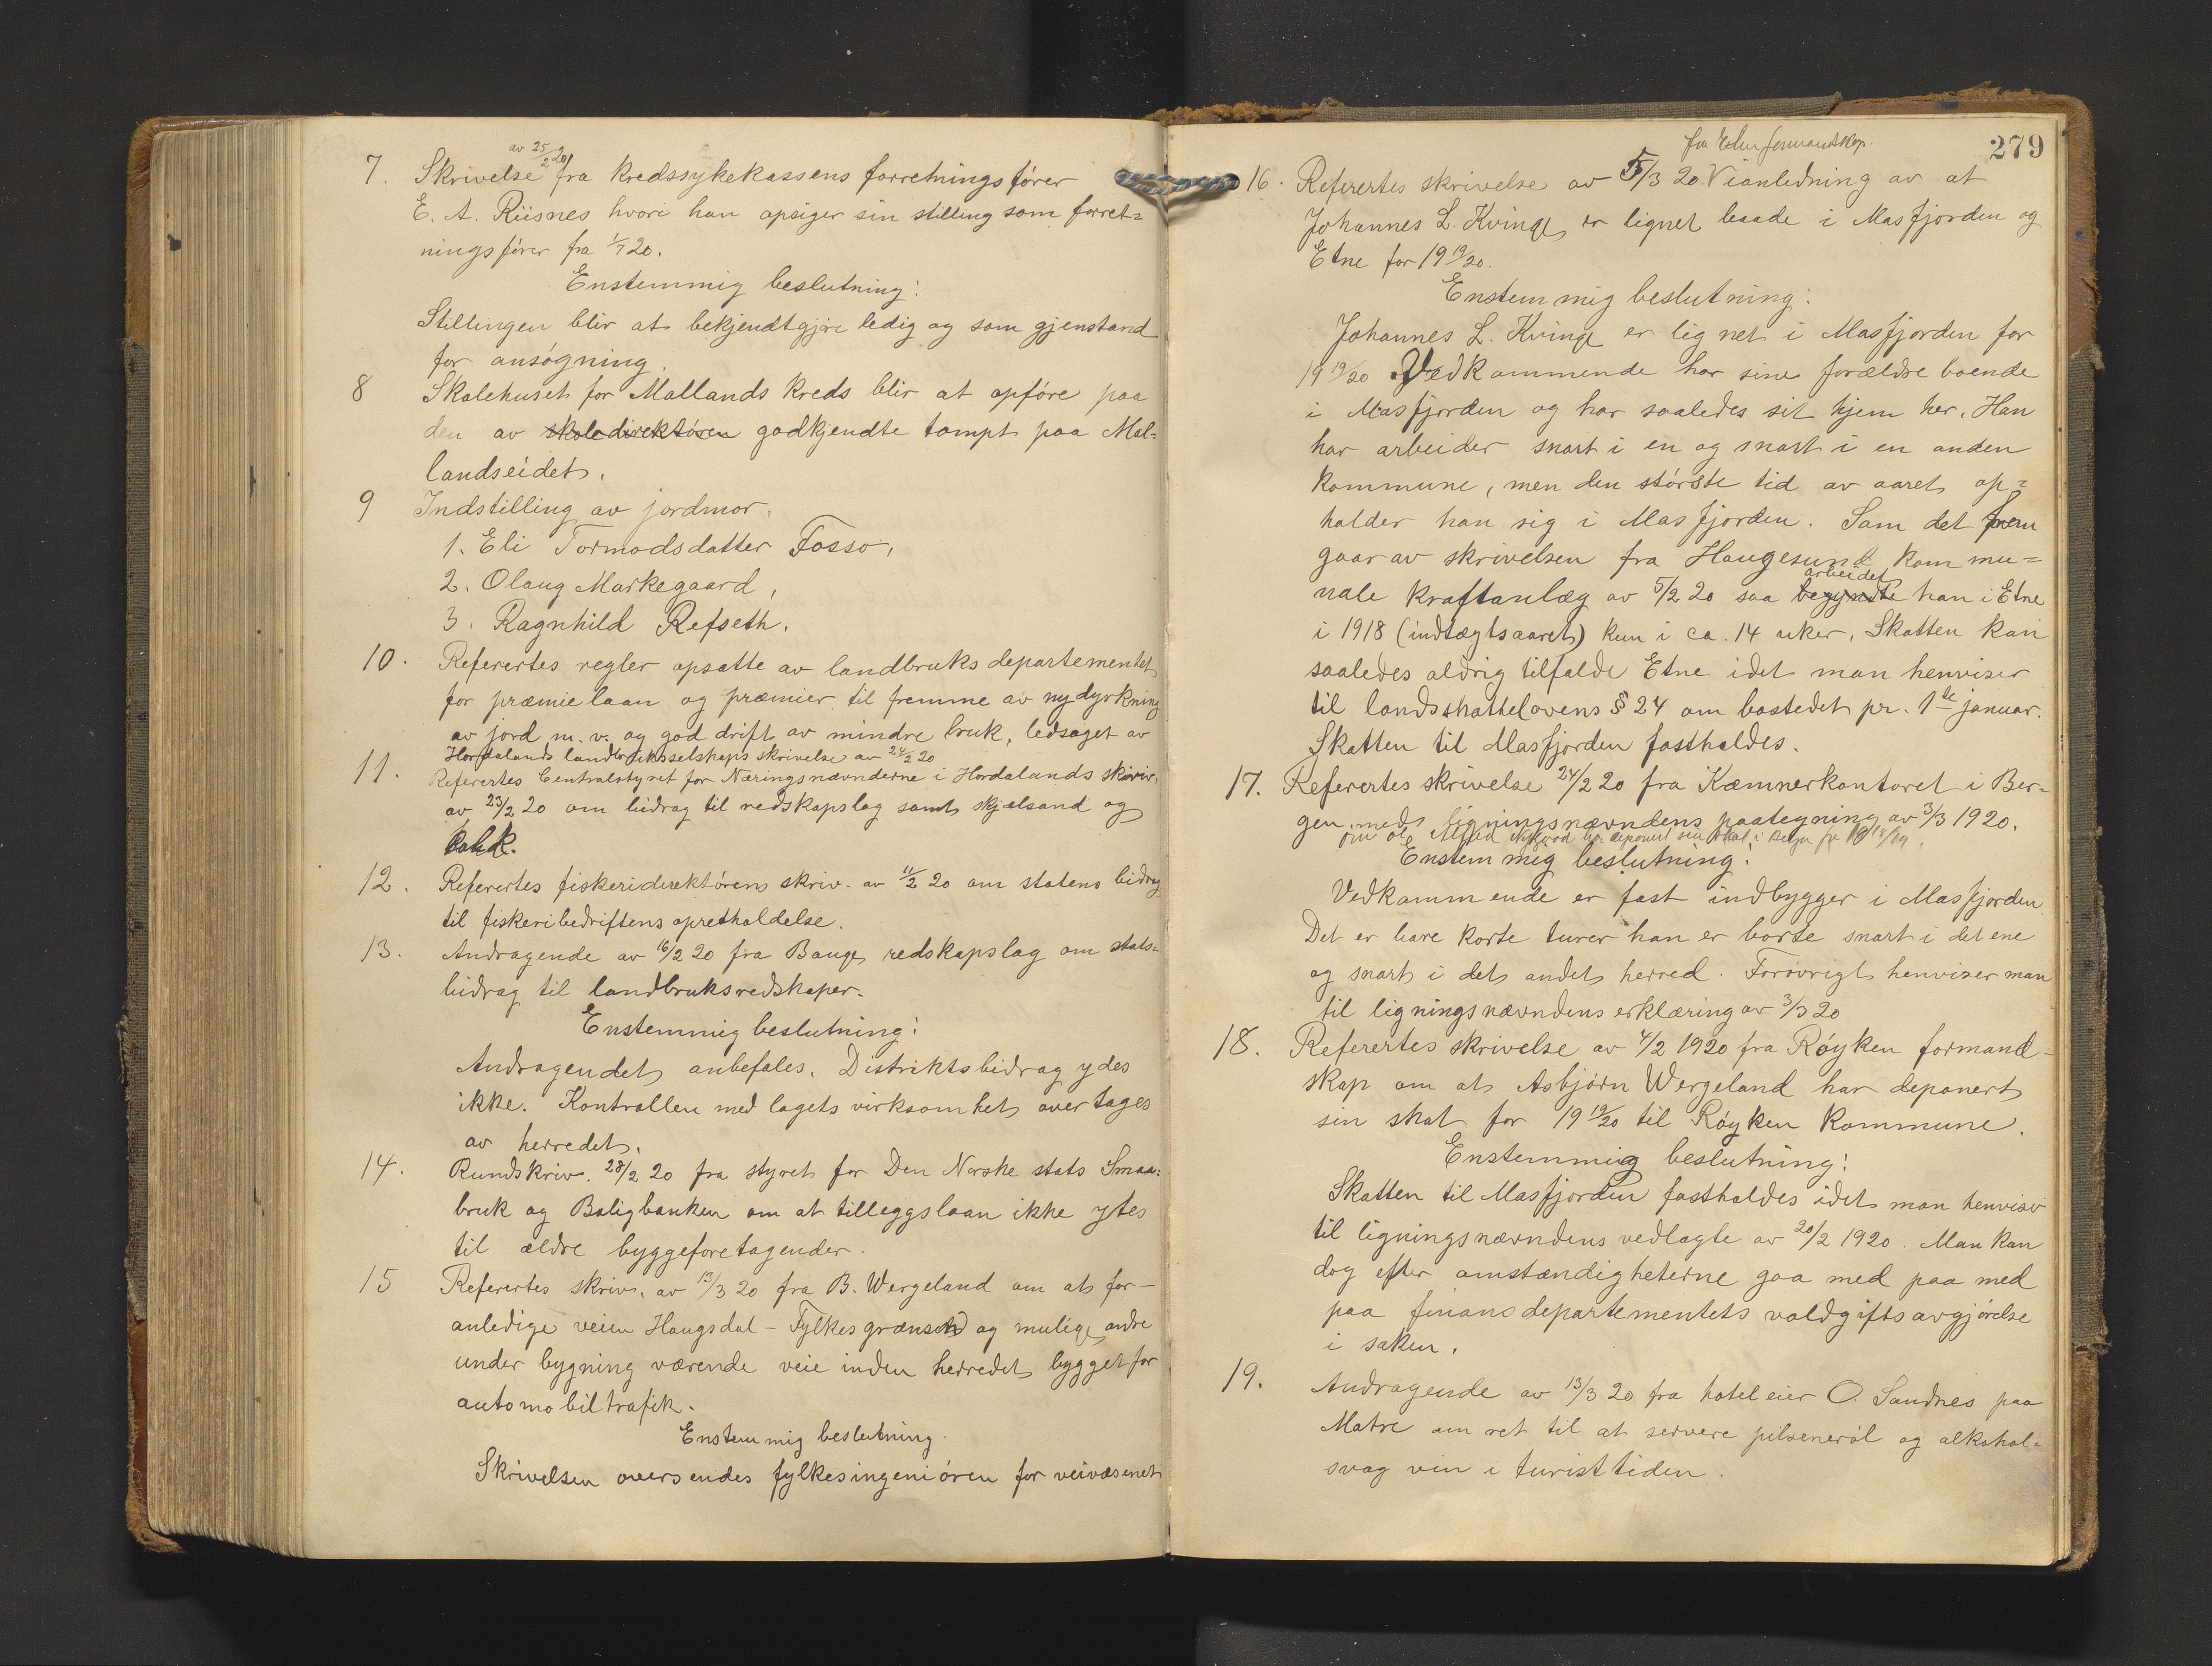 av 25/2 20
7. Skrivelse fra kredssykekassens forretningsfører
E. A. Riisnes hvori han opsiger sin stilling som forret=
ningsfører fra 1/7 20.
Enstemmig beslutning:
Stillingen blir at bekjendtgjøre ledig og som gjenstand
for ansøgning.
8 Skolehuset for Mallands kreds blir at opføre paa
den av skoledirektøren godkjendte tompt paa Mal=
landseidet.
9 Indstilling av jordmor.
1. Eli Tormodsdatter Fosso,
2. Olaug Markegaard,
3. Ragnhild Refseth.
10. Referertes regler opsatte av landbruksdepartementet
for præmielaan og præmier til fremme av nydyrkning
av jord m. v. og god drift av mindre bruk, ledsaget av
Hordalands landbruksselskaps skrivelse av 24/2 20
11. Referertes Centralstyret for Næringsnævnderne i Hordalands skriv.
av 23/2 20 om bidrag til redskapslag samt skjælsand og
kalk.
12. Referertes fiskeridirektørens skriv. av 11/2 20 om statens bidrag
til fiskeribedriftens opretholdelse.
13. Andragende av 16/2 20 fra Bauge redskapslag om stats=
bidrag til landbruksredskaper.
Enstemmig beslutning:
Andragendet anbefales. Distriktsbidrag ydes
ikke. Kontrollen med lagets virksomhet overtages
av herredet.
14. Rundskriv. 28/2 20 fra styret for Den Norske stats Smaa=
bruk og Boligbanken om at tilleggslaan ikke ytes
til ældre byggeforetagender.
15 Referertes skriv. av 13/3 20 fra B. Wergeland om at for-
anledige veien Haugsdal - Fylkesgrænsen og mulige andre
under bygning værende veie inden herredet bygget for
automobiltrafik.
Enstemmig beslutning.
Skrivelsen oversendes fylkesingeniøren for veivæsenet
279
fra Etne formandskap.
16. Referertes skrivelse av 5/3 20 I anledning av at
Johannes L. Kvinge er lignet baade i Masfjorden og
Etne for 19 19/20.
Enstemmig beslutning:
Johannes L. Kvinge er lignet i Masfjorden for
19 19/20. Vedkommende har sine forældre boende
i Masfjorden og har saaledes sit hjem her. Han
har arbeider snart i en og snart i en anden
kommune, men den største tid av aaret op=
holder han sig i Masfjorden. Som det frem
gaar av skrivelsen fra Haugesund kommu=
arbeidet
nale kraftanlæg av 5/2 20 saa begyndte han i Etne
i 1918 (indtægtsaaret) kun i ca. 14 uker. Skatten kan
saaledes aldrig tilfalde Etne idet man henviser
til landsskattelovens § 24 om bostedet pr. 1ste januar.
Skatten til Masfjorden fastholdes.
17. Referertes skrivelse 24/2 20 fra Kæmnerkontoret i Ber=
gen med ligningsnævndens paategning av 3/3 1920.
om at har deponert sin skat i Bergen for 19 18/19.
Enstemmig beslutning:
Vedkommende er fast indbygger i Masfjorden
Det er bare korte turer han er borte snart i det ene
og snart i det andet herred. Forøvrigt henviser man
til ligningsnævndens erklæring av 3/3 20
18. Referertes skrivelse av 4/2 1920 fra Røyken formand-
skap om at Asbjørn Wergeland har deponert
sin skat for 19 19/20 til Røyken kommune.
Enstemmig beslutning:
Skatten til Masfjorden fastholdes idet man henviser
til ligningsnævndens vedlagte av 20/2 1920. Man kan
dog efter omstændigheterne gaa med paa med
paa finansdepartementets voldgiftsavgjørelse
i saken.
19. Andragende av 13/3 20 fra hoteleier O. Sandnes paa
Matre om ret til at servere pilsenerøl og alkohol=
svag vin i turisttiden.